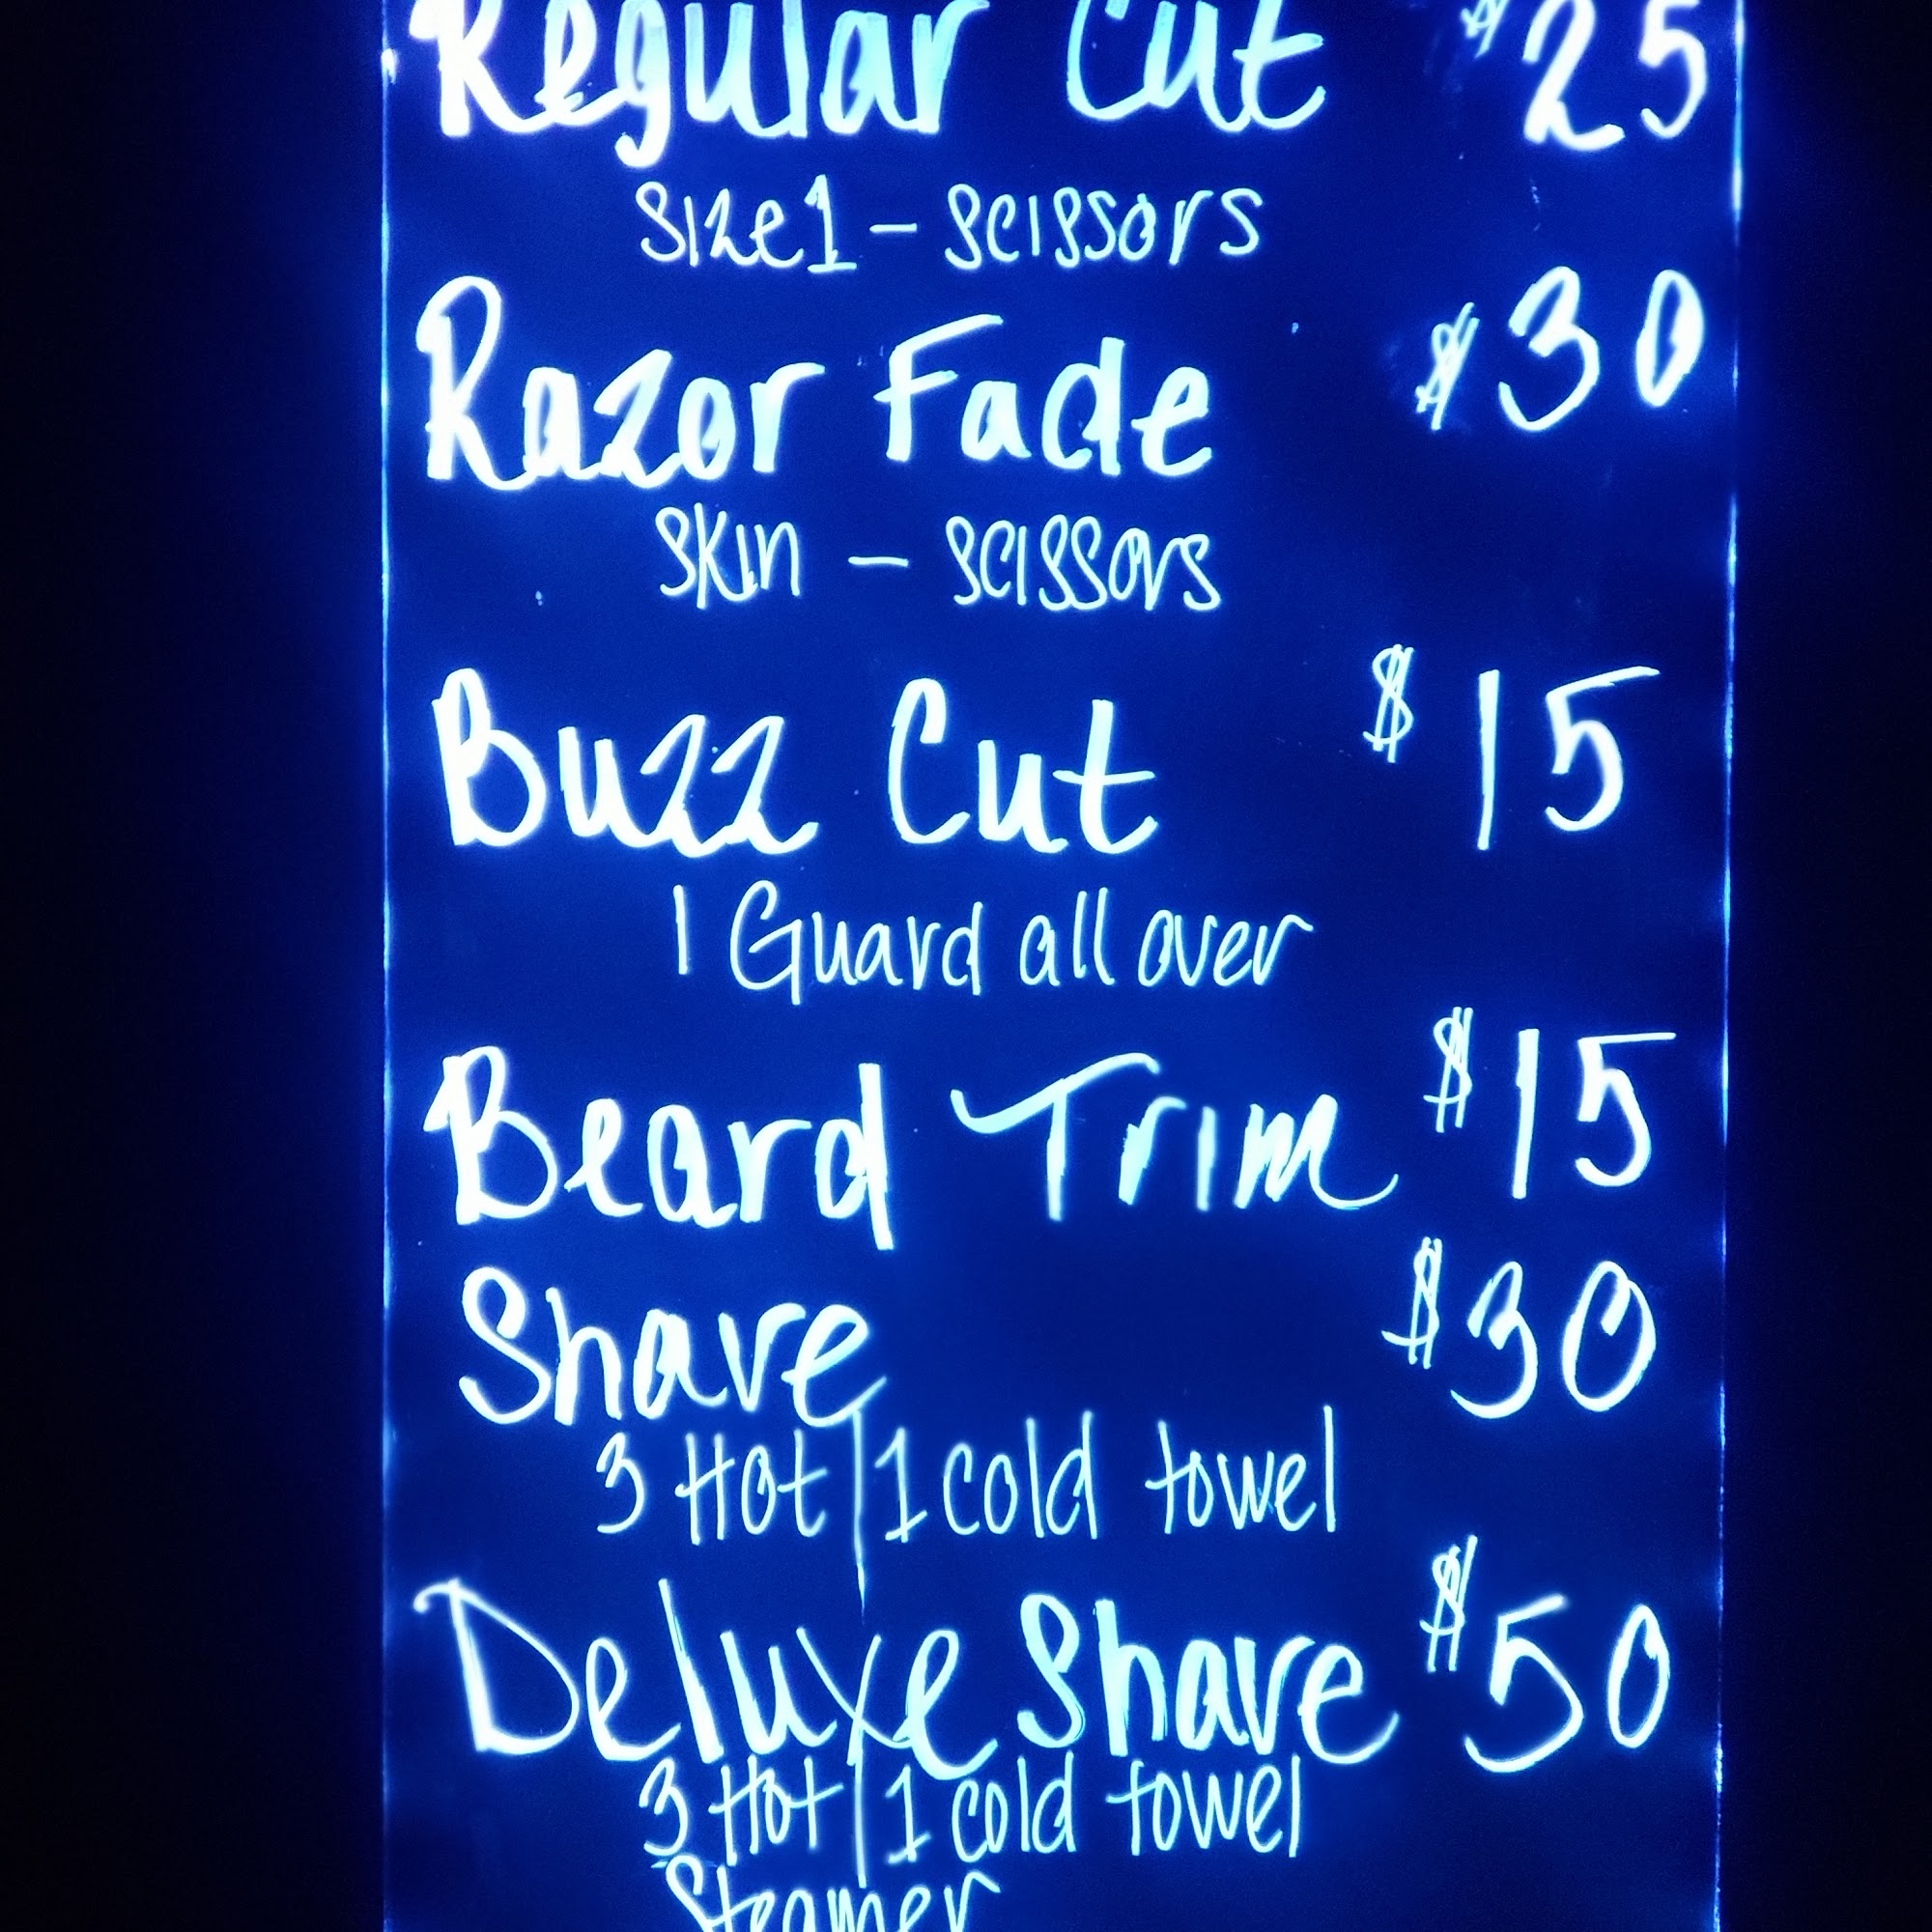 Regular Cut $25
Size 1 - scissors
Razor Fade $30
Skin - scissors
Buzz Cut $15
1 Guard all over
Beard Trim $15
Shave $30
3 Hot/1 cold towel
Deluxe Shave $50
3 Hot/1 cold towel
Steamer